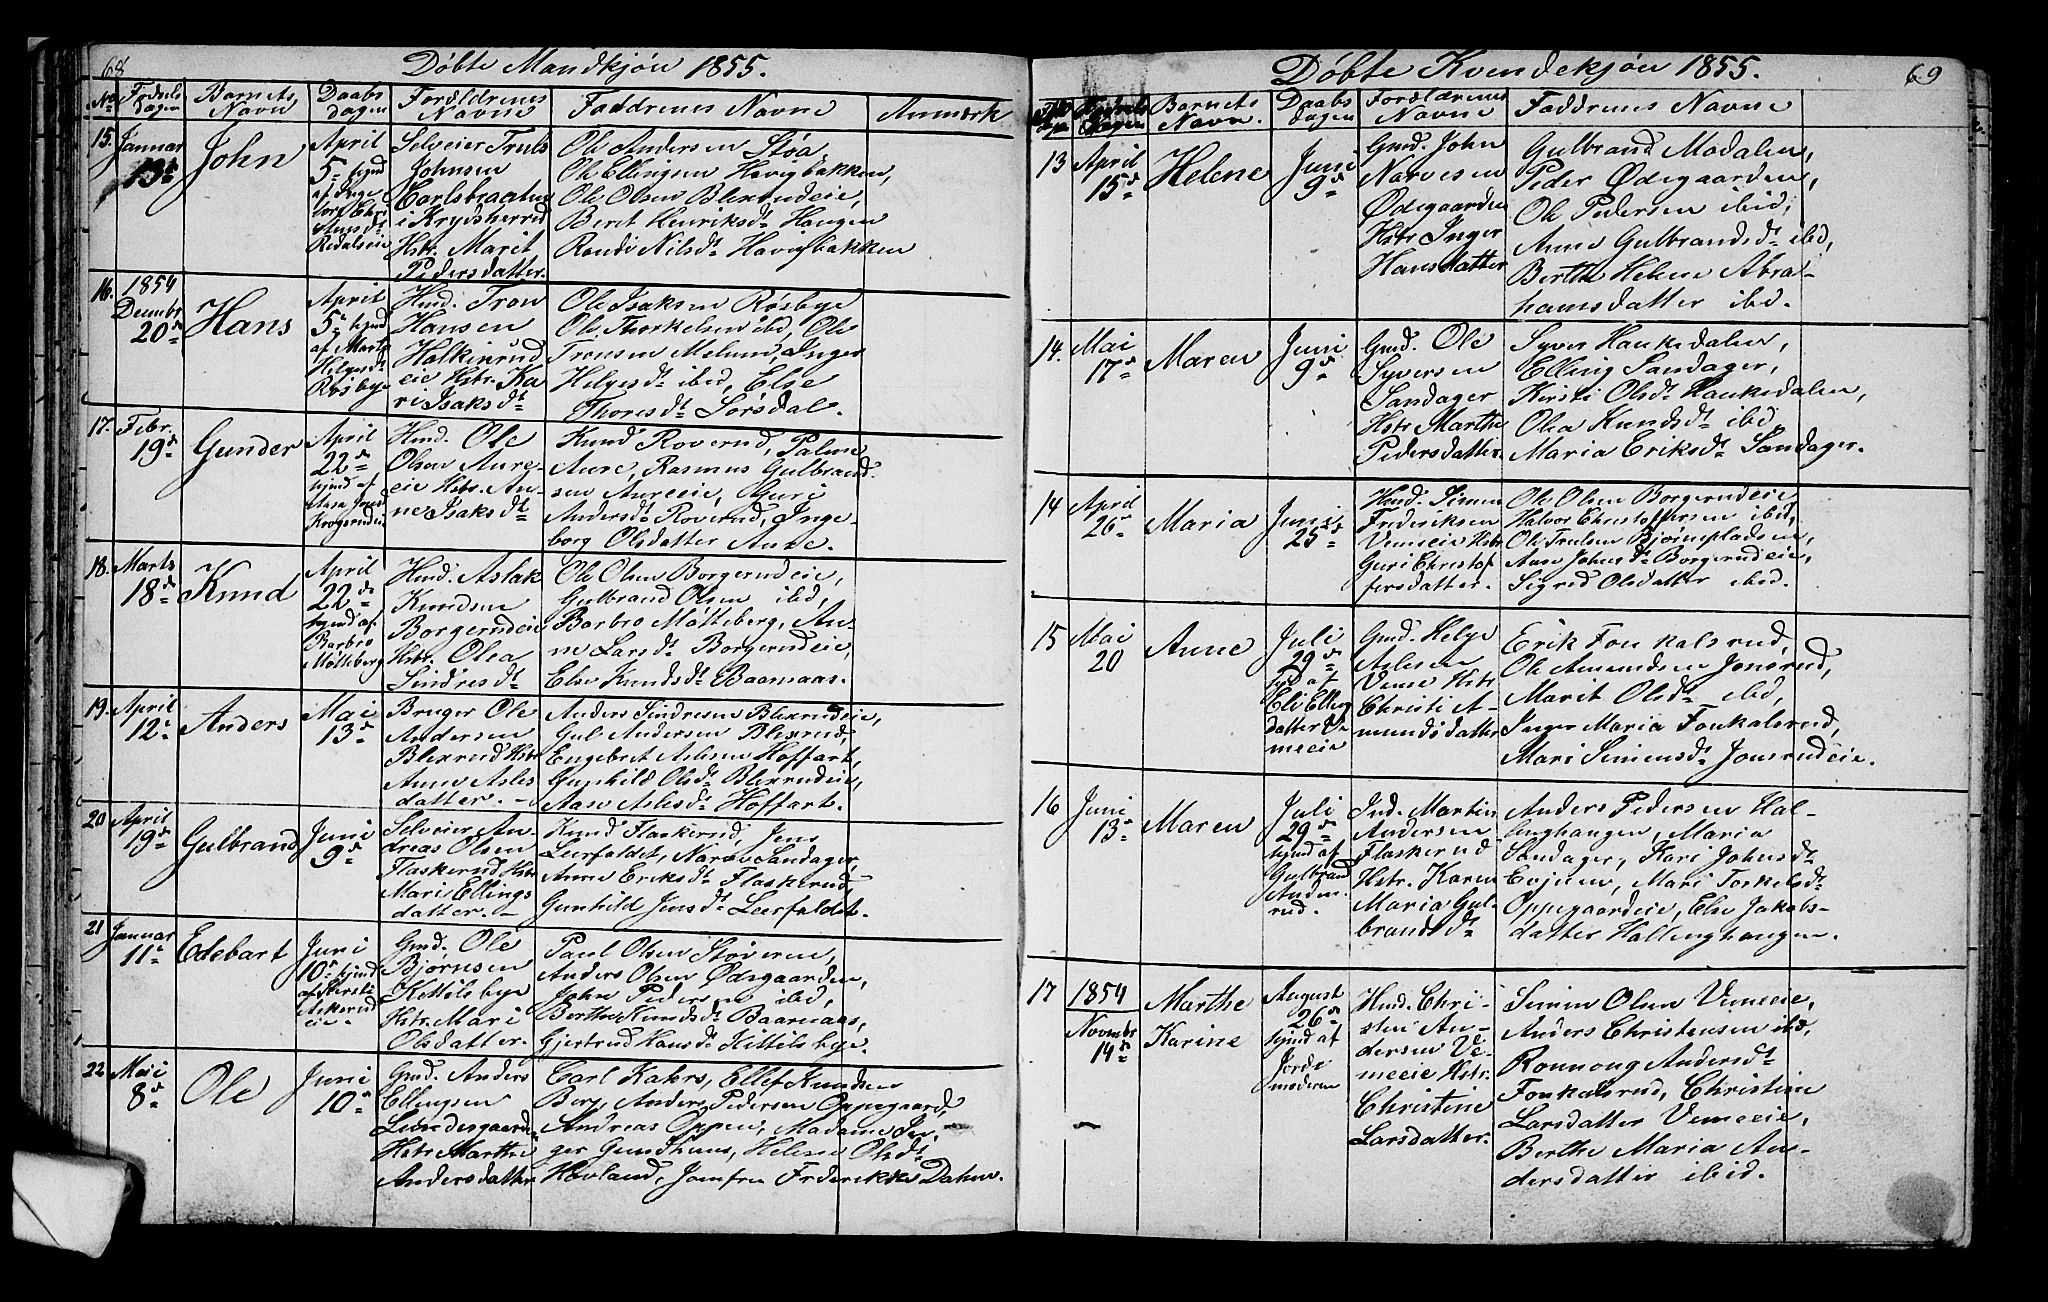 68
Døbte Mandkjøn 1855.
No Fødsels dagen
Barnets Navn
Daabs dagen
Forældrenes Navne
Faddrenes Navne
Anmærk
15. Januar 13de
John
April
5te hjmd
af Inge
Selveier Truls
Johnsen
i Krydsherred
Hstr. Marit
Pedersdatter.
Ole Andersen Støa,
Ole Ellingsen Havigbakken,
Ole Olsen Blexrudeie,
Berit Henriksdt Haugen
Randi Nilsdt Havigbakken
16. 1854
Decembr
20de
Hans
April
5te hjmd
af Marte
Helgesdt
Røsbye
Hmd. Tron
Hansen
Halkinrud
eie Hstr. Ka
ri Isaksdt
Ole Isaksen Røsbye
Ole Thorkelsen ibid, Ole
Tronsen Melum, Inger
Helgesdt ibid, Else
Thoresdt Sørsdal.
17. Febr.
19de
Gunder
April
22de
hjmd af
Hmd. Ole
Olsen Aure-
eie Hstr. An-
ne Isaksdt
Knud Roverud, Palme
Aure, Rasmus Gulbrand
sen Aureeie, Guri
Andersdt Roverud, Inge-
borg Olsdatter Aure.
18. Marts
18de
Knud
April
22de
hjmd af
Barbro
Møtteberg
Hmd. Aslak
Knudsen
Borgerudeie
Hstr. Olea
Sindresdt
Ole Olsen Borgerudeie,
Gulbrand Olsen ibid,
Barbro Møtteberg, An-
ne Larsdt Borgerudeie,
Else Knudsdt Baarnaas.
19. April
12te
Anders
Mai
13de
Bruger Ole
Andersen
Blexrud Hstr
Anne Asles
datter. -
Anders Sindresen Blexrudeie,
Gul Andersen Blexrud,
Engebret Aslesen Hoffart,
Gunhild Olsdt Blexrudeie,
Aase Aslesdt Hoffart.
20 April
19de
Gulbrand
Juni
9de
Selveier An-
dreas Olsen
Flaskerud Hstr
Mari Ellings
datter. -
Knud Flaskerud, Jens
Leerfaldet, Narve Sandager
Anne Eriksdt Flaskerud,
Gunhild Jensdt Leerfaldet.
21 Januar
11te
Edebart
Juni
10de hjmd
af Kersti
Askerud
eie.
Gmd. Ole
Bjørnsen
Kittilsbye
Hstr. Mari
Olsdatter.
Paul Olsen Støveren,
Anders Olsen Ødegaarden,
John Pedersen ibid,
Berthe Knudsdt Baarnaas,
Gjertrud Hansdt Kittilsbye.
22 Mai
8de
Ole
Juni
10de
Gmd. Anders
Ellingsen
Hstr Marthe
Andersdatter
Carl Kahrs, Ellef Knudsen
Berg, Anders Pedersen Oppegaard,
Andreas Oppen, Madame In-
ger Gundhuus, Helene Olsdt
Hovland, Jomfru Frderikke Dahm.
Døbte Kvindekjøn 1855.
69
Barnets Navn.
Daabs dagen
Forældrenes Navne
Faddrenes Navne
13 April
15de
Helene
Juni
9de
Gmd. John
Narvesen
Ødegaarden
Hstr Inger
Hansdatter
Gulbrand Modalen,
Peder Ødegaarden,
Ole Pedersen ibid,
Anne Gulbrandsdt ibid,
Berthe Helene Abra-
hamsdatter ibid.
14. Mai
17de
Maren
Juni
9de
Gmd. Ole
Syversen
Sandager
Hstr Marthe
Pedersdatter.
Syver Hauksdalen,
Elling Sandager,
Kirsti Olsdt Hauksdalen,
Olea Knudsdt ibid
Maria Eriksdt Sandager.
14 April
26de
Maria
Juni
25de
Hmd. Simen
Frederiksen
Vemeeie Hstr
Guri Christof
fersdatter.
Ole Olsen Borgerudeie
Halvor Christoffersen ibid,
Ole Trulsen Bjørnpladsen,
Aase Johnsdt Borgerudeie,
Sigrid Olsdatter ibid.
15 Mai
20
Anne
Juli
29de
hjmd af
Eli Elling
datter Ve
meeie
Gmd. Helge
Aslesen
Veme Hstr
Christi A-
mundsdatter
Erik Fonkalsrud,
Ole Amundsen Jonsrud,
Marit Olsdt ibid,
Inger Maria Fonkalsrud,
Mari Simensdt Jonsrudeie.
16 Juni
13de
Maren
Juli
29de
hjmd af
Gulbrand
Anden-
rud.
Ind. Martin
Andersen
Flaskerud
Hstr. Karen
Maria Gul-
brandsdt
Anders Pedersen Hal-
linghaugen, Maria
Sandager, Kari Johnsdt
Evjuen, Mari Torkelsdt
Oppegaardeie, Else Jakobs-
datter Hallinghaugen.
17 1854
Novmbr
14de
Marthe
Karine
August
26de
hjmd af
Jorde
moderen
Hmd. Chri-
sten An-
dersen Ve-
meeie Hstr.
Christine
Larsdatter.
Simen Olsen Vemeeie,
Anders Christensen ibid,
Ronnoug Andersdt
Fonkalsrud, Christine
Larsdatter Vemeeie,
Berthe Maria An-
dersdatter ibid.